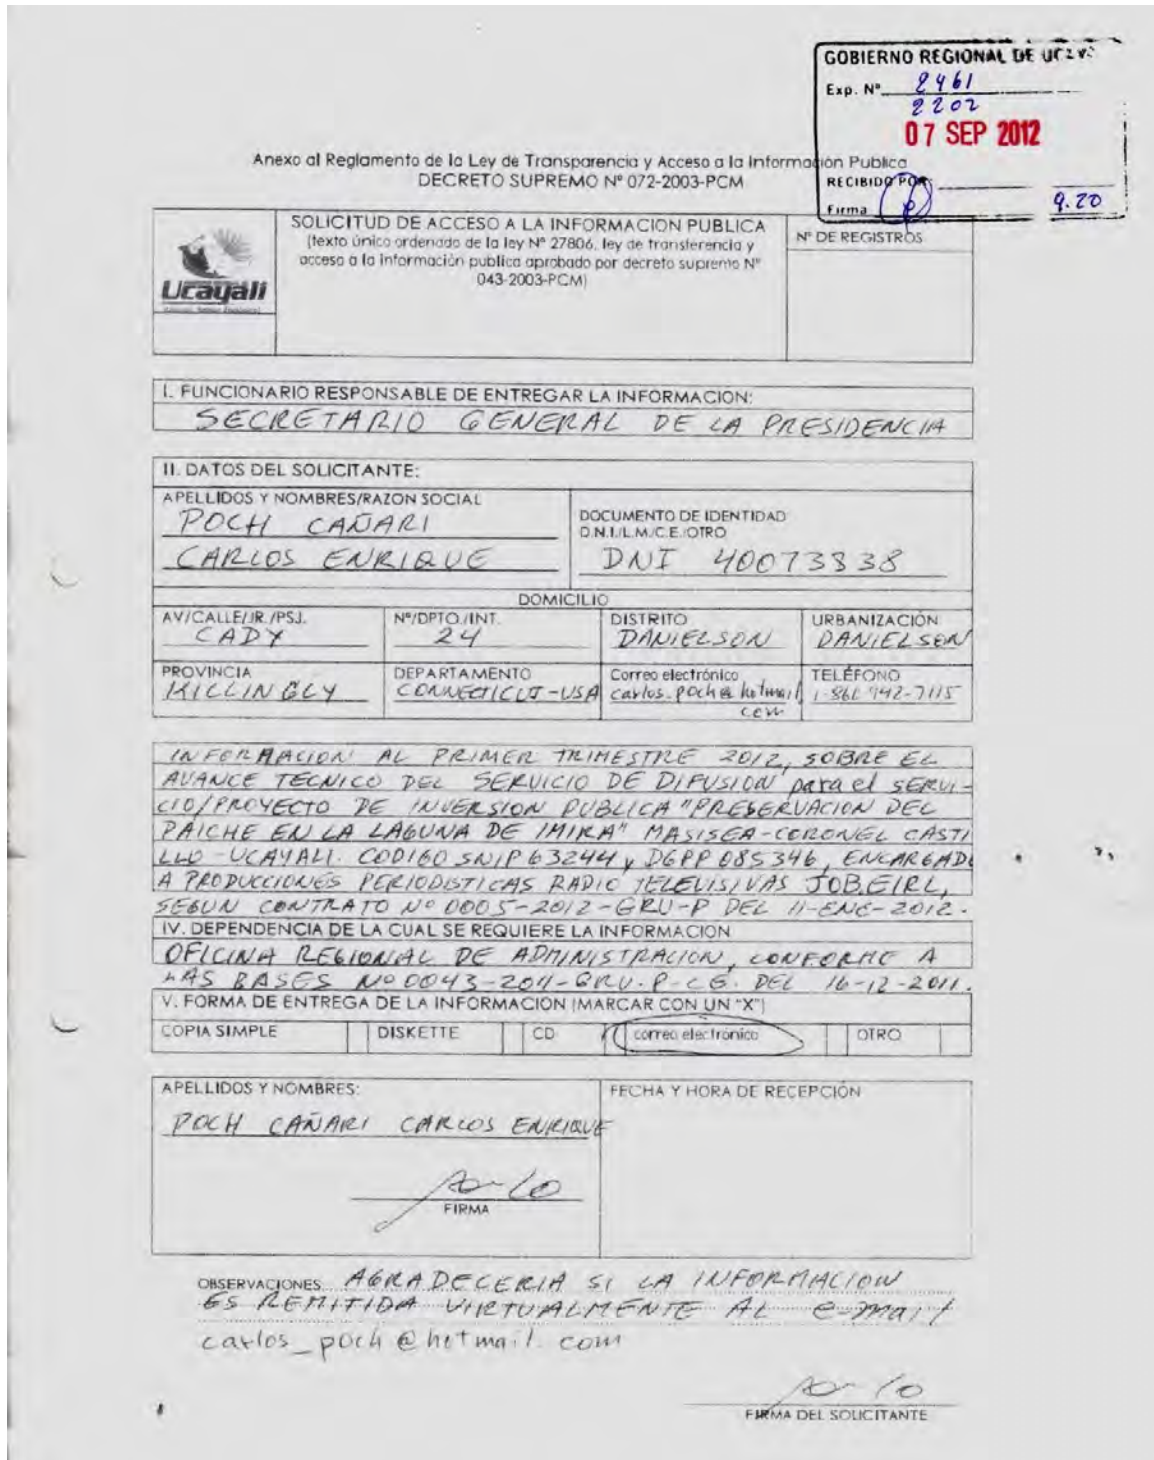 GOBIERNO REGIONAL DE
Exp. Nº 2461
2202
07 SEP 2012
RECIBIDO POR
Firma 9.20
Anexo al Reglamento de la Ley de Transparencia y Acceso a la Información Publica
DECRETO SUPREMO Nº 072-2003-PCM
SOLICITUD DE ACCESO A LA INFORMACION PUBLICA
(texto único ordenado de la ley Nº 27806, ley de transferencia y
acceso a la información publica aprobado por decreto supremo Nº
043-2003-PCM)
Nº DE REGISTROS
Ucayali
I. FUNCIONARIO RESPONSABLE DE ENTREGAR LA INFORMACION:
SECRETARIO GENERAL DE LA PRESIDENCIA
II. DATOS DEL SOLICITANTE:
APELLIDOS Y NOMBRES/RAZON SOCIAL
POCH CAÑARI
CARLOS ENRIQUE
DOCUMENTO DE IDENTIDAD
D.N.I./L.M./C.E./OTRO
DNI 40073838
DOMICILIO
AV/CALLE/JR./PSJ.
CADY
Nº/DPTO./INT.
24
DISTRITO
DANIELSON
URBANIZACIÓN
DANIELSON
PROVINCIA
KILLINGLY
DEPARTAMENTO
CONNECTICUT-USA
Correo electrónico
carlos_poch@hotmail
com
TELÉFONO
1-860 942-7115
INFORMACION AL PRIMER TRIMESTRE 2012, SOBRE EL
AVANCE TECNICO DEL SERVICIO DE DIFUSION para el SERVI-
CIO/PROYECTO DE INVERSION PUBLICA "PRESERVACION DEL
PAICHE EN LA LAGUNA DE IMIRA" MASISEA-CORONEL CASTI
LLO-UCAYALI. CODIGO SNIP 63244 y DGPP 085346, ENCARGADO
A PRODUCCIONES PERIODISTICAS RADIO TELEVISIVAS JOB.EIRL,
SEGUN CONTRATO Nº 0005-2012-GRU-P DEL 11-ENE-2012.
IV. DEPENDENCIA DE LA CUAL SE REQUIERE LA INFORMACION
OFICINA REGIONAL DE ADMINISTRACION, CONFORME A
LAS BASES Nº 0043-2011-GRU-P-CE. DEL 16-12-2011.
V. FORMA DE ENTREGA DE LA INFORMACION (MARCAR CON UN "X")
COPIA SIMPLE DISKETTE CD correo electrónico OTRO
APELLIDOS Y NOMBRES:
POCH CAÑARI CARLOS ENRIQUE
FIRMA
FECHA Y HORA DE RECEPCIÓN
OBSERVACIONES AGRADECERIA SI LA INFORMACION
ES REMITIDA VIRTUALMENTE AL e-mail
carlos_poch@hotmail.com
FIRMA DEL SOLICITANTE